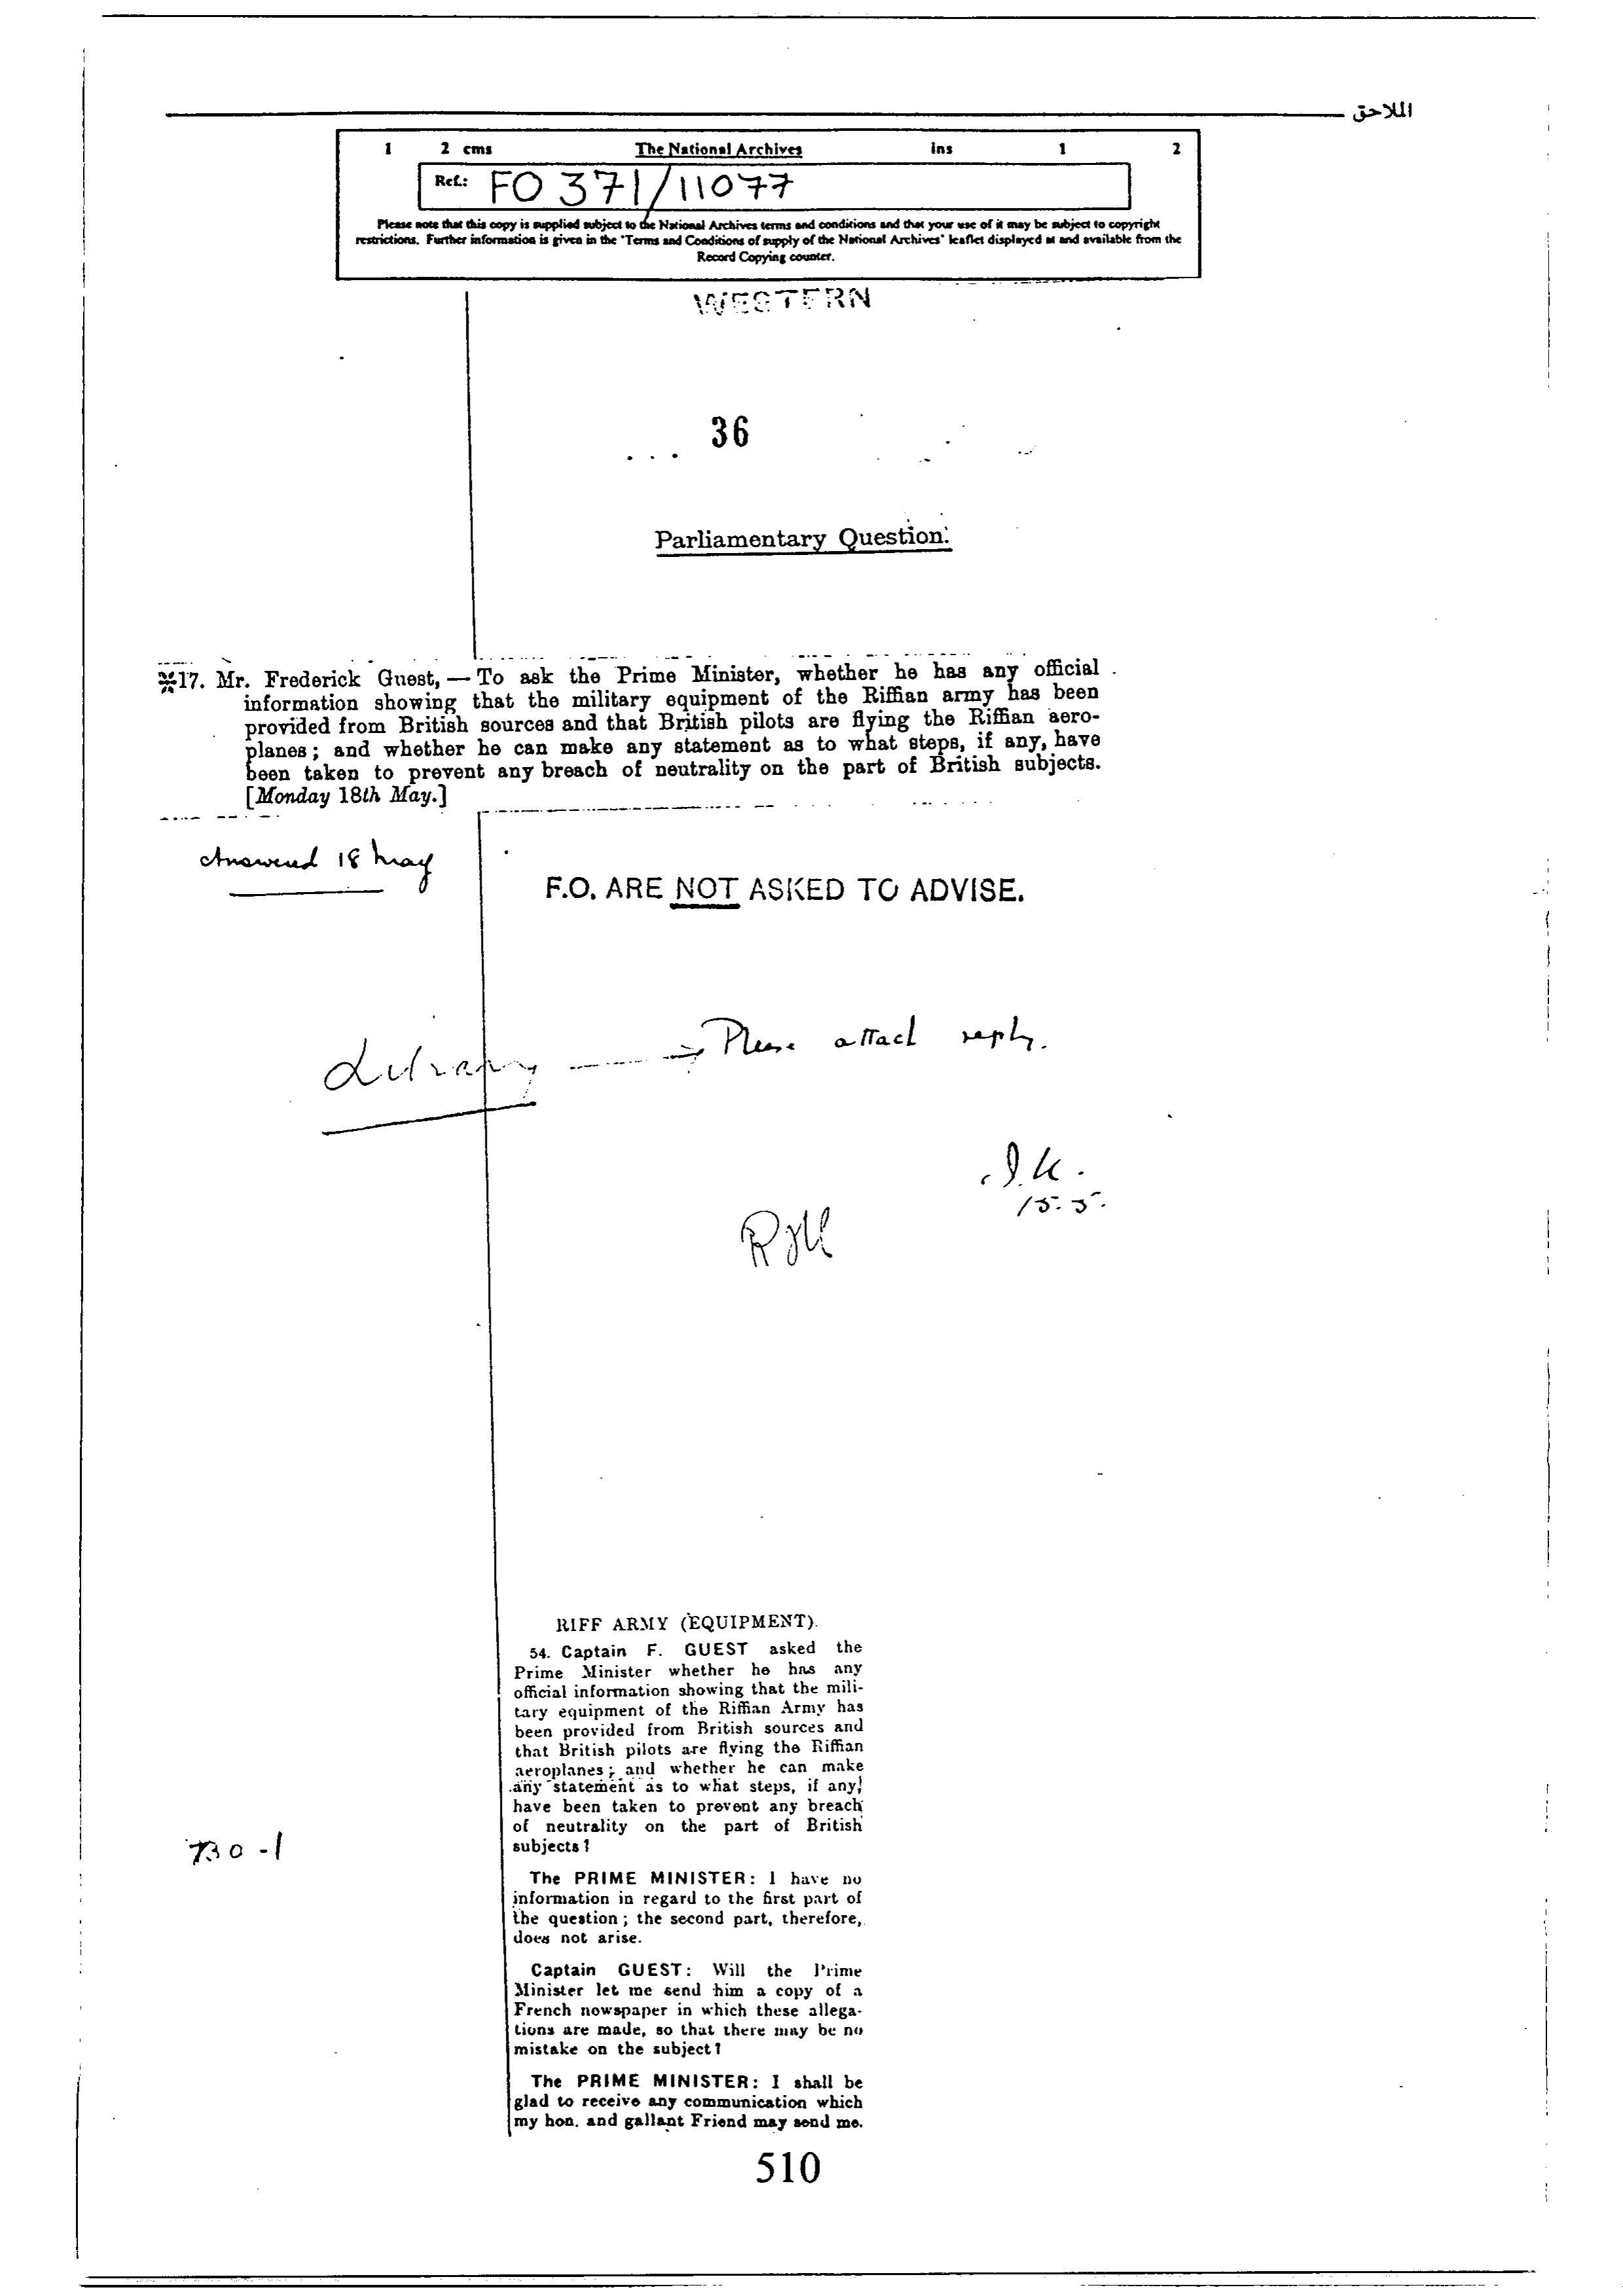 الملاحق
1 2 cms The National Archives ins 1 2
Ref.: FO 371/11077
Please note that this copy is supplied subject to the National Archives terms and conditions and that your use of it may be subject to copyright
restrictions. Further information is given in the 'Terms and Conditions of supply of the National Archives' leaflet displayed at and available from the
Record Copying counter.
WESTERN
36
Parliamentary Question.
※17. Mr. Frederick Guest, — To ask the Prime Minister, whether he has any official
information showing that the military equipment of the Riffian army has been
provided from British sources and that British pilots are flying the Riffian aero-
planes; and whether he can make any statement as to what steps, if any, have
been taken to prevent any breach of neutrality on the part of British subjects.
[Monday 18th May.]
Answered 18 May
F.O. ARE NOT ASKED TO ADVISE.
Library → Please attach reply.
15.5.
RIFF ARMY (EQUIPMENT).
54. Captain F. GUEST asked the
Prime Minister whether he has any
official information showing that the mili-
tary equipment of the Riffian Army has
been provided from British sources and
that British pilots are flying the Riffian
aeroplanes; and whether he can make
any statement as to what steps, if any,
have been taken to prevent any breach
of neutrality on the part of British
subjects?
730-1
The PRIME MINISTER: I have no
information in regard to the first part of
the question; the second part, therefore,
does not arise.
Captain GUEST: Will the Prime
Minister let me send him a copy of a
French newspaper in which these allega-
tions are made, so that there may be no
mistake on the subject?
The PRIME MINISTER: I shall be
glad to receive any communication which
my hon. and gallant Friend may send me.
510